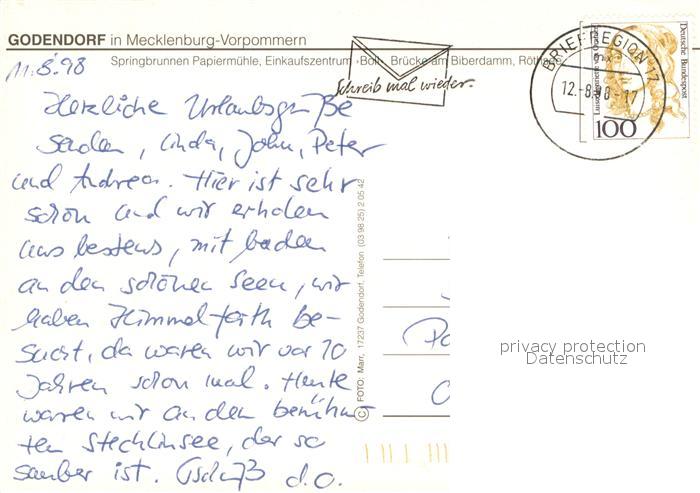 GODENDORF in Mecklenburg-Vorpommern
Springbrunnen Papiermühle, Einkaufszentrum Bolt, Brücke am Biberdamm,
Schreib mal wieder.
BRIEFREGION 17
12.-8.98-17
Deutsche Bundespost
100
11.8.98
Herzliche Urlaubsgrüße
senden, Linda, John, Peter
und Andrea. Hier ist sehr
schön und wir erholen
uns bestens, mit baden
an den schönen Seen, wir
haben Himmelpforth be-
sucht, da waren wir vor 10
Jahren schon mal. Heute
waren wir an den berühm-
ten Stechlinsee, der so
sauber ist. Tschüß d.O.
© FOTO: Marr, 17237 Godendorf, Telefon (03 98 25) 2 05 42
privacy protection
Datenschutz